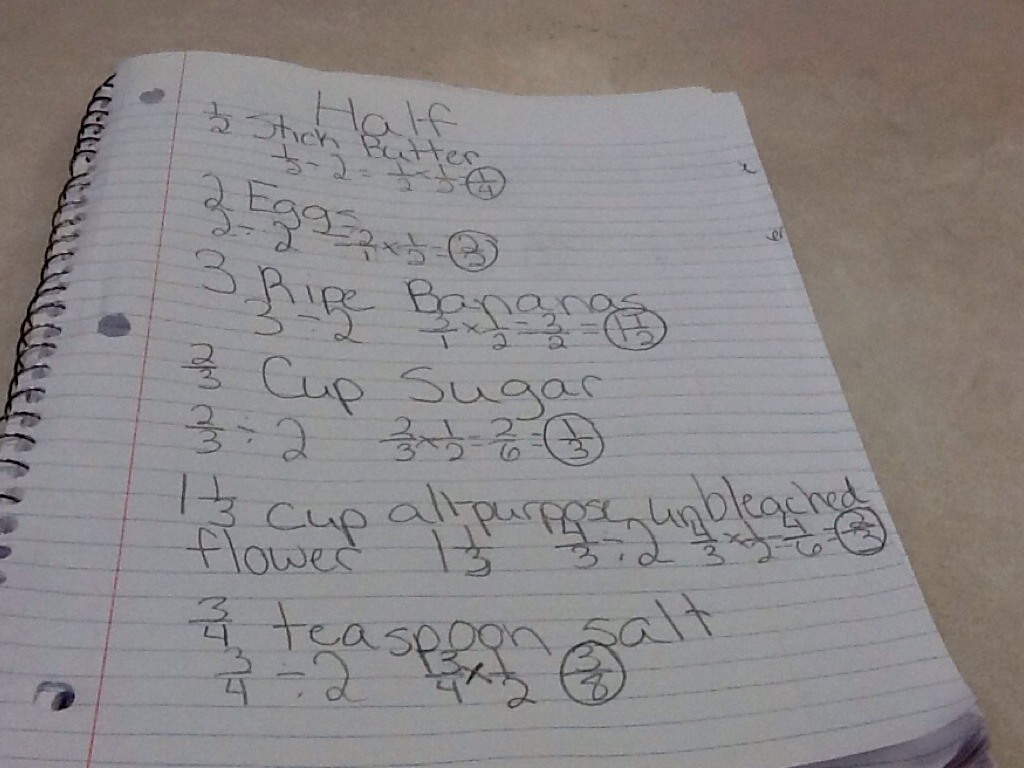 Half
1/2 Stick Butter
1/2 ÷ 2 = 1/2 × 1/2 = 1/4
2 Eggs
2 ÷ 2 = 2/1 × 1/2 = 2/2
3 Ripe Bananas
3 ÷ 2 3/1 × 1/2 = 3/2 = 1 1/2
2/3 Cup Sugar
2/3 ÷ 2 2/3 × 1/2 = 2/6 = 1/3
1 1/3 cup all-purpose unbleached
flower 1 1/3 4/3 ÷ 2 4/3 × 1/2 = 4/6 = 2/3
3/4 teaspoon salt
3/4 ÷ 2 3/4 × 1/2 3/8